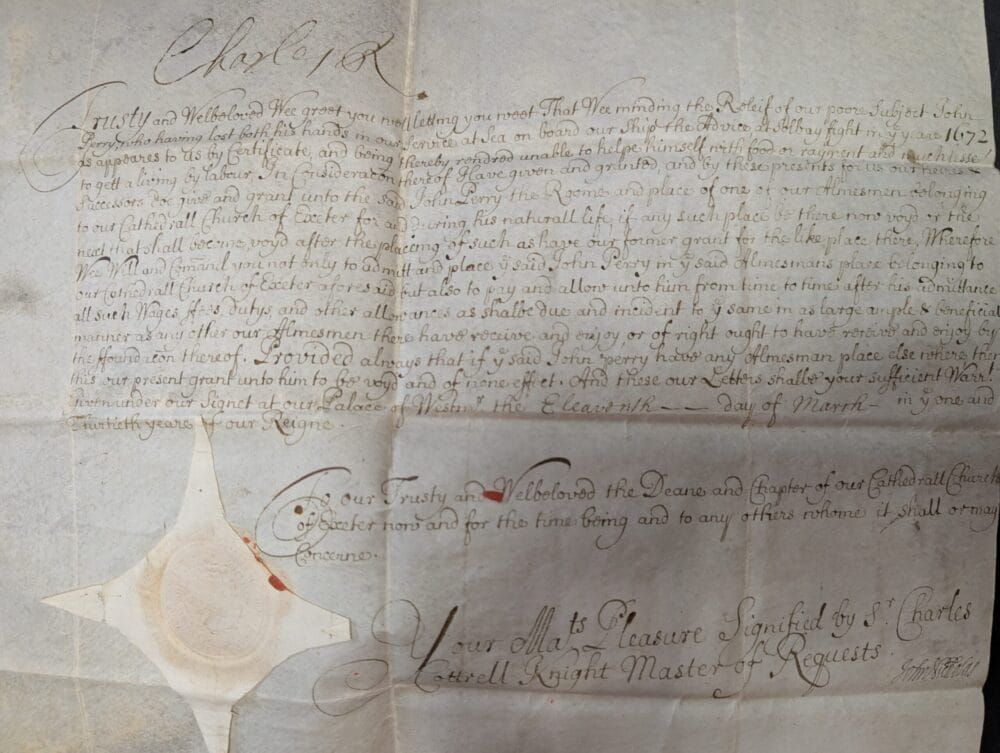 Charles R
Trusty and Welbeloved Wee greet you well letting you weet That Wee minding the Releif of our poore Subject John
Perry who having lost both his hands in our Service at Sea on board our Ship the Advice at Solbay fight in ye yeare 1672
as appeares to us by Certificate, and being thereby rendred unable to helpe himself with food or rayment and much lesse
to gett a living by labour. In Consideracon thereof Have given and granted, and by these presents for us our heires &
Successors doe give and grant unto the said John Perry the Roome and place of one of our Almesmen belonging
to our Cathedrall Church of Exeter for and during his naturall life, if any such place be there now voyd or the
next that shall become voyd after the placeing of such as have our former grant for the like place there, Wherefore
Wee Will and Comand you not only to admitt and place ye said John Perry in ye said Almesmans place belonging to
our Cathedrall Church of Exeter aforesaid but also to pay and allow unto him from time to time after his admittance
all such Wages, ffees, dutys and other allowances as shalbe due and incident to ye same in as large ample & beneficial
manner as any other our Almesmen there have receive and enjoy, or of right ought to have receive and enjoy by
the ffoundacon thereof. Provided always that if ye said John Perry have any Almesman place else where, then
this our present grant unto him to be voyd and of none effect. And these our Letters shalbe your sufficient Warrt.
Given under our Signet at our Palace of Westmr the Eleaventh day of March in ye one and
Thirtieth yeare of our Reigne.
To our Trusty and Welbeloved the Deane and Chapter of our Cathedrall Church
of Exeter now and for the time being and to any others whome it shall or may
Concerne.
Your Mats Pleasure Signified by Sr Charles
Cottrell Knight Master of Requests
John Nicholas